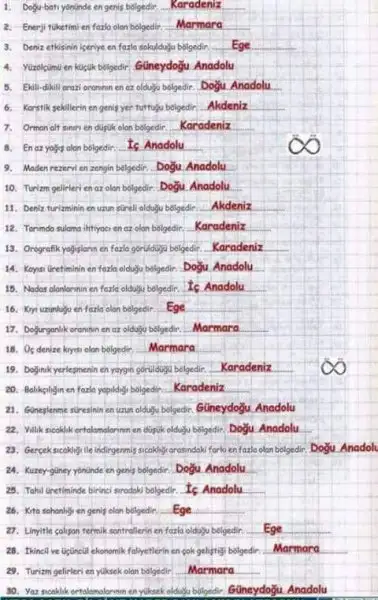 1. Doğu-batı yönünde en geniş bölgedir. ....Karadeniz
2. Enerji tüketimi en fazla olan bölgedir. ....Marmara......
3. Deniz etkisinin içeriye en fazla sokulduğu bölgedir. ......Ege......
4. Yüzölçümü en küçük bölgedir. Güneydoğu Anadolu
5. Ekili-dikili arazi oranının en az olduğu bölgedir. Doğu Anadolu
6. Karstik şekillerin en geniş yer tuttuğu bölgedir. ....Akdeniz......
7. Orman alt sınırı en düşük olan bölgedir. ....Karadeniz......
8. En az yağış alan bölgedir. ....İç Anadolu......
9. Maden rezervi en zengin bölgedir. ..Doğu Anadolu......
10. Turizm gelirleri en az olan bölgedir. Doğu Anadolu......
11. Deniz turizminin en uzun süreli olduğu bölgedir. ....Akdeniz......
12. Tarımda sulama ihtiyacı en az olan bölgedir. ....Karadeniz......
13. Orografik yağışların en fazla görüldüğü bölgedir. ....Karadeniz......
14. Kayısı üretiminin en fazla olduğu bölgedir. Doğu Anadolu....
15. Nadas alanlarının en fazla olduğu bölgedir. ..İç Anadolu......
16. Kıyı uzunluğu en fazla olan bölgedir. ......Ege......
17. Doğurganlık oranının en az olduğu bölgedir. ....Marmara......
18. Üç denize kıyısı olan bölgedir. ....Marmara......
19. Dağınık yerleşmenin en yaygın görüldüğü bölgedir. ....Karadeniz......
20. Balıkçılığın en fazla yapıldığı bölgedir. ..Karadeniz......
21. Güneşlenme süresinin en uzun olduğu bölgedir. Güneydoğu Anadolu
22. Yıllık sıcaklık ortalamalarının en düşük olduğu bölgedir. Doğu Anadolu....
23. Gerçek sıcaklığı ile indirgenmiş sıcaklığı arasındaki farkı en fazla olan bölgedir. Doğu Anadolu
24. Kuzey-güney yönünde en geniş bölgedir. ..Doğu Anadolu....
25. Tahıl üretiminde birinci sıradaki bölgedir. ..İç Anadolu......
26. Kıta sahanlığı en geniş olan bölgedir. ....Ege......
27. Linyitle çalışan termik santrallerin en fazla olduğu bölgedir. ......Ege......
28. İkincil ve üçüncül ekonomik faliyetlerin en çok geliştiği bölgedir. ..Marmara......
29. Turizm gelirleri en yüksek olan bölgedir. ....Marmara......
30. Yaz sıcaklık ortalamalarının en yüksek olduğu bölgedir. Güneydoğu Anadolu